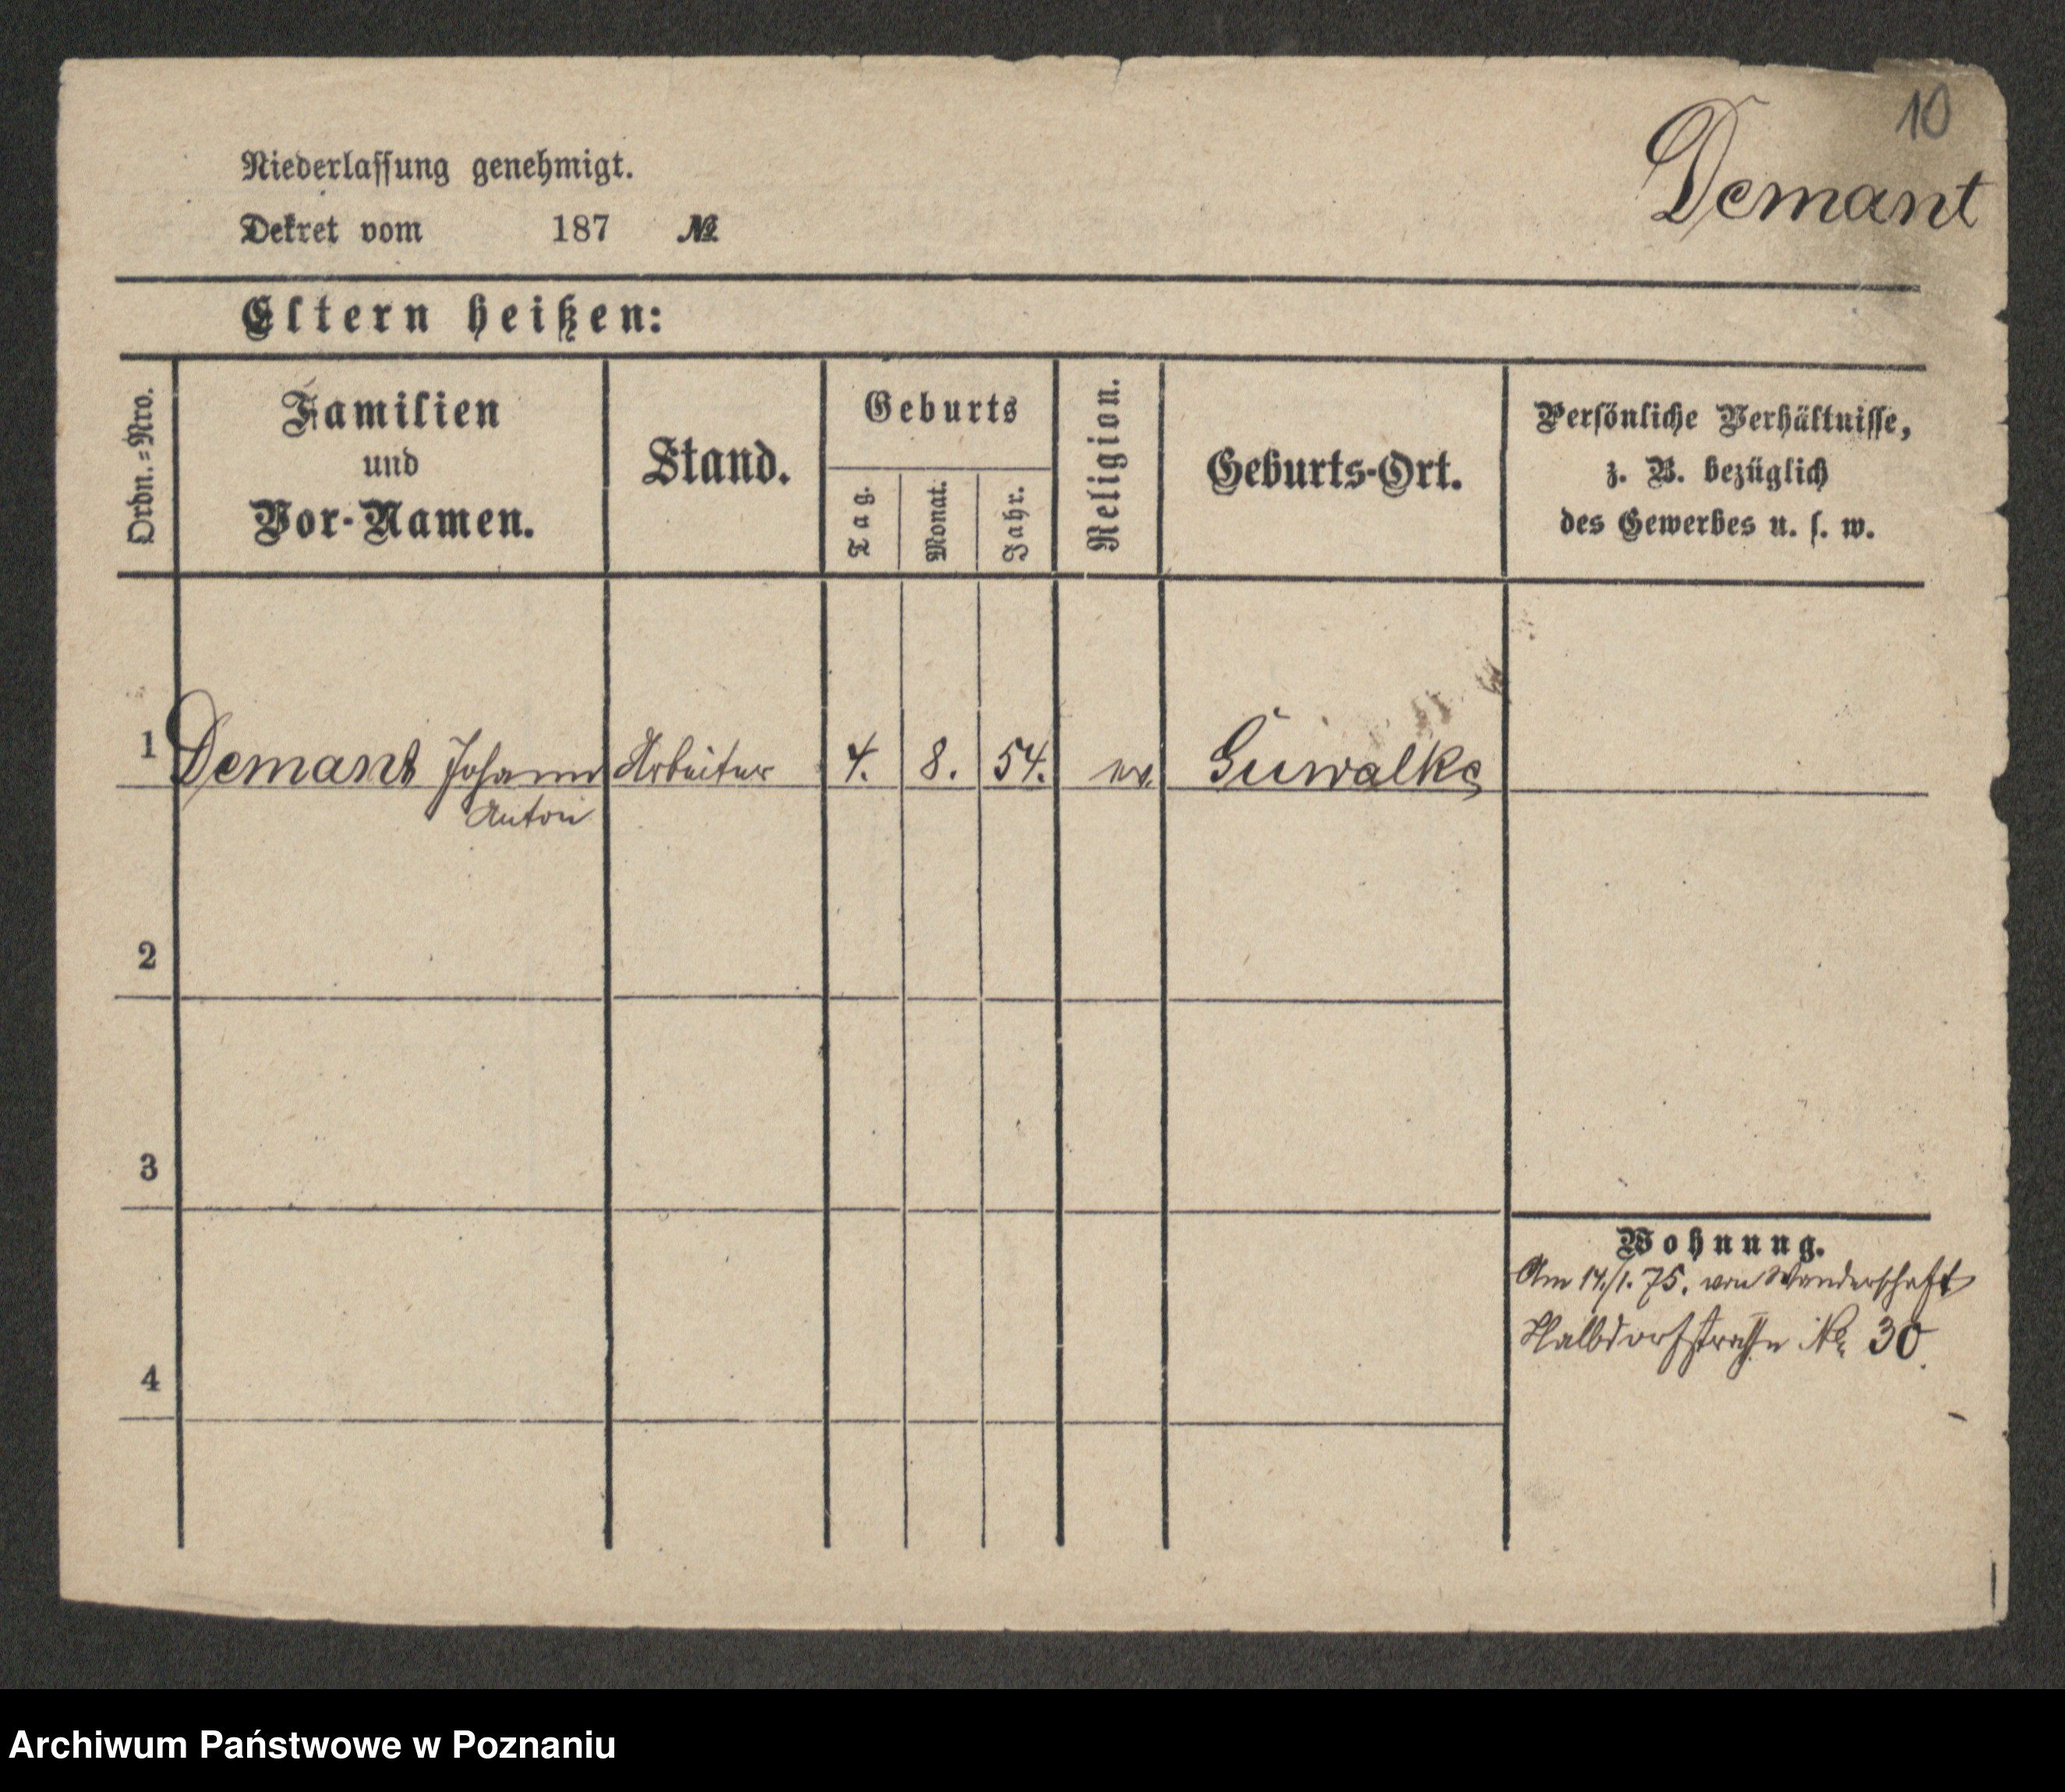 10
Demant
Niederlassung genehmigt.
Dekret vom 187 №
Eltern heißen:
Ordn.=Nro.
Familien
und
Vor-Namen.
Stand.
Geburts
Tag.
Monat.
Jahr.
Religion.
Geburts-Ort.
Persönliche Verhältnisse,
z. B. bezüglich
des Gewerbes u. s. w.
1 Demant Johann Arbeiter 4. 8. 54.
Anton
2
3
4
Wohnung.
Am 14/1. 75. von Wanderschaft
Halbdorfstraße No 30.
Archiwum Państwowe w Poznaniu